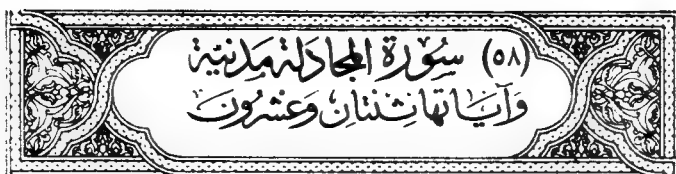 (٥٨) سُوْرَة المجَادَلة مَدنيّة
وَآيَاتهَا ثنتَان وَعشرُونَ